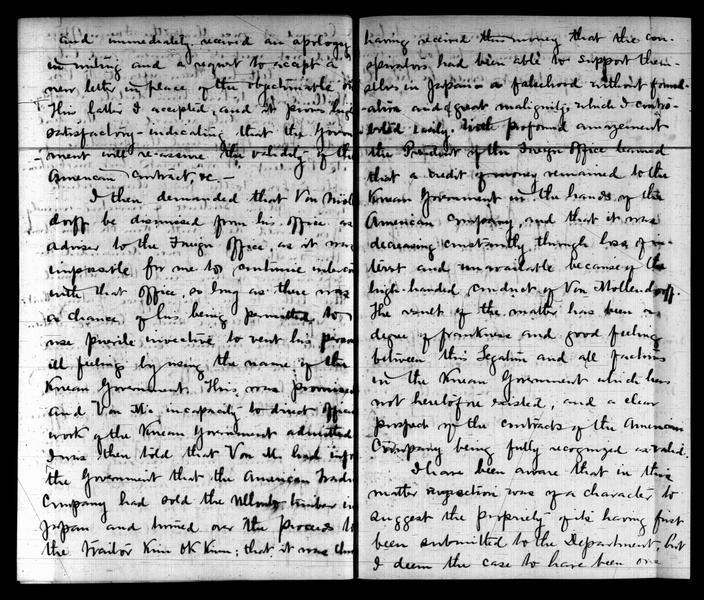 and immediately received an apology
in writing and a request to accept a
new letter in place of the objectionable
This latter I accepted, and it proves
satisfactory - indicating that the Govern
ment will re-assure the validity of the
American Contract, &c -
I then demanded that Von Moll
dorff be dismissed from his office as
adviser to the Foreign Office, as it was
impossible for me to continue
with that office, so long as there was
a chance of his being permitted to
use puerile invective to vent his
ill feeling by using the name of the
Korean Government. This was promised
and Von M's incapacity to direct
work of the Korean Government admitted.
I was then told that Von M. had
the Government that the American
Company had sold the timber in
Japan and turned over the proceeds to
the traitor Kim Ok Kiun; that it was
having received this money that the con-
spirators had been able to support them-
selves in Japan - a falsehood without found-
ation and great malignity, which I contro-
verted easily. With profound amazement
the President of the Foreign Office learned
that a credit of money remained to the
Korean Government in the hands of the
American Company, and that it was
decreasing constantly through loss of in-
terest and unavailable because of the
high-handed conduct of Von Mollendorff.
The result of the matter has been a
degree of frankness and good feeling
between this Legation and all factions
in the Korean Government which has
not heretofore existed, and a clear
prospect of the contracts of the American
Company being fully recognized as valid.
I have been aware that in this
matter my action was of a character to
suggest the propriety of its having first
been submitted to the Department, but
I deem the case to have been one